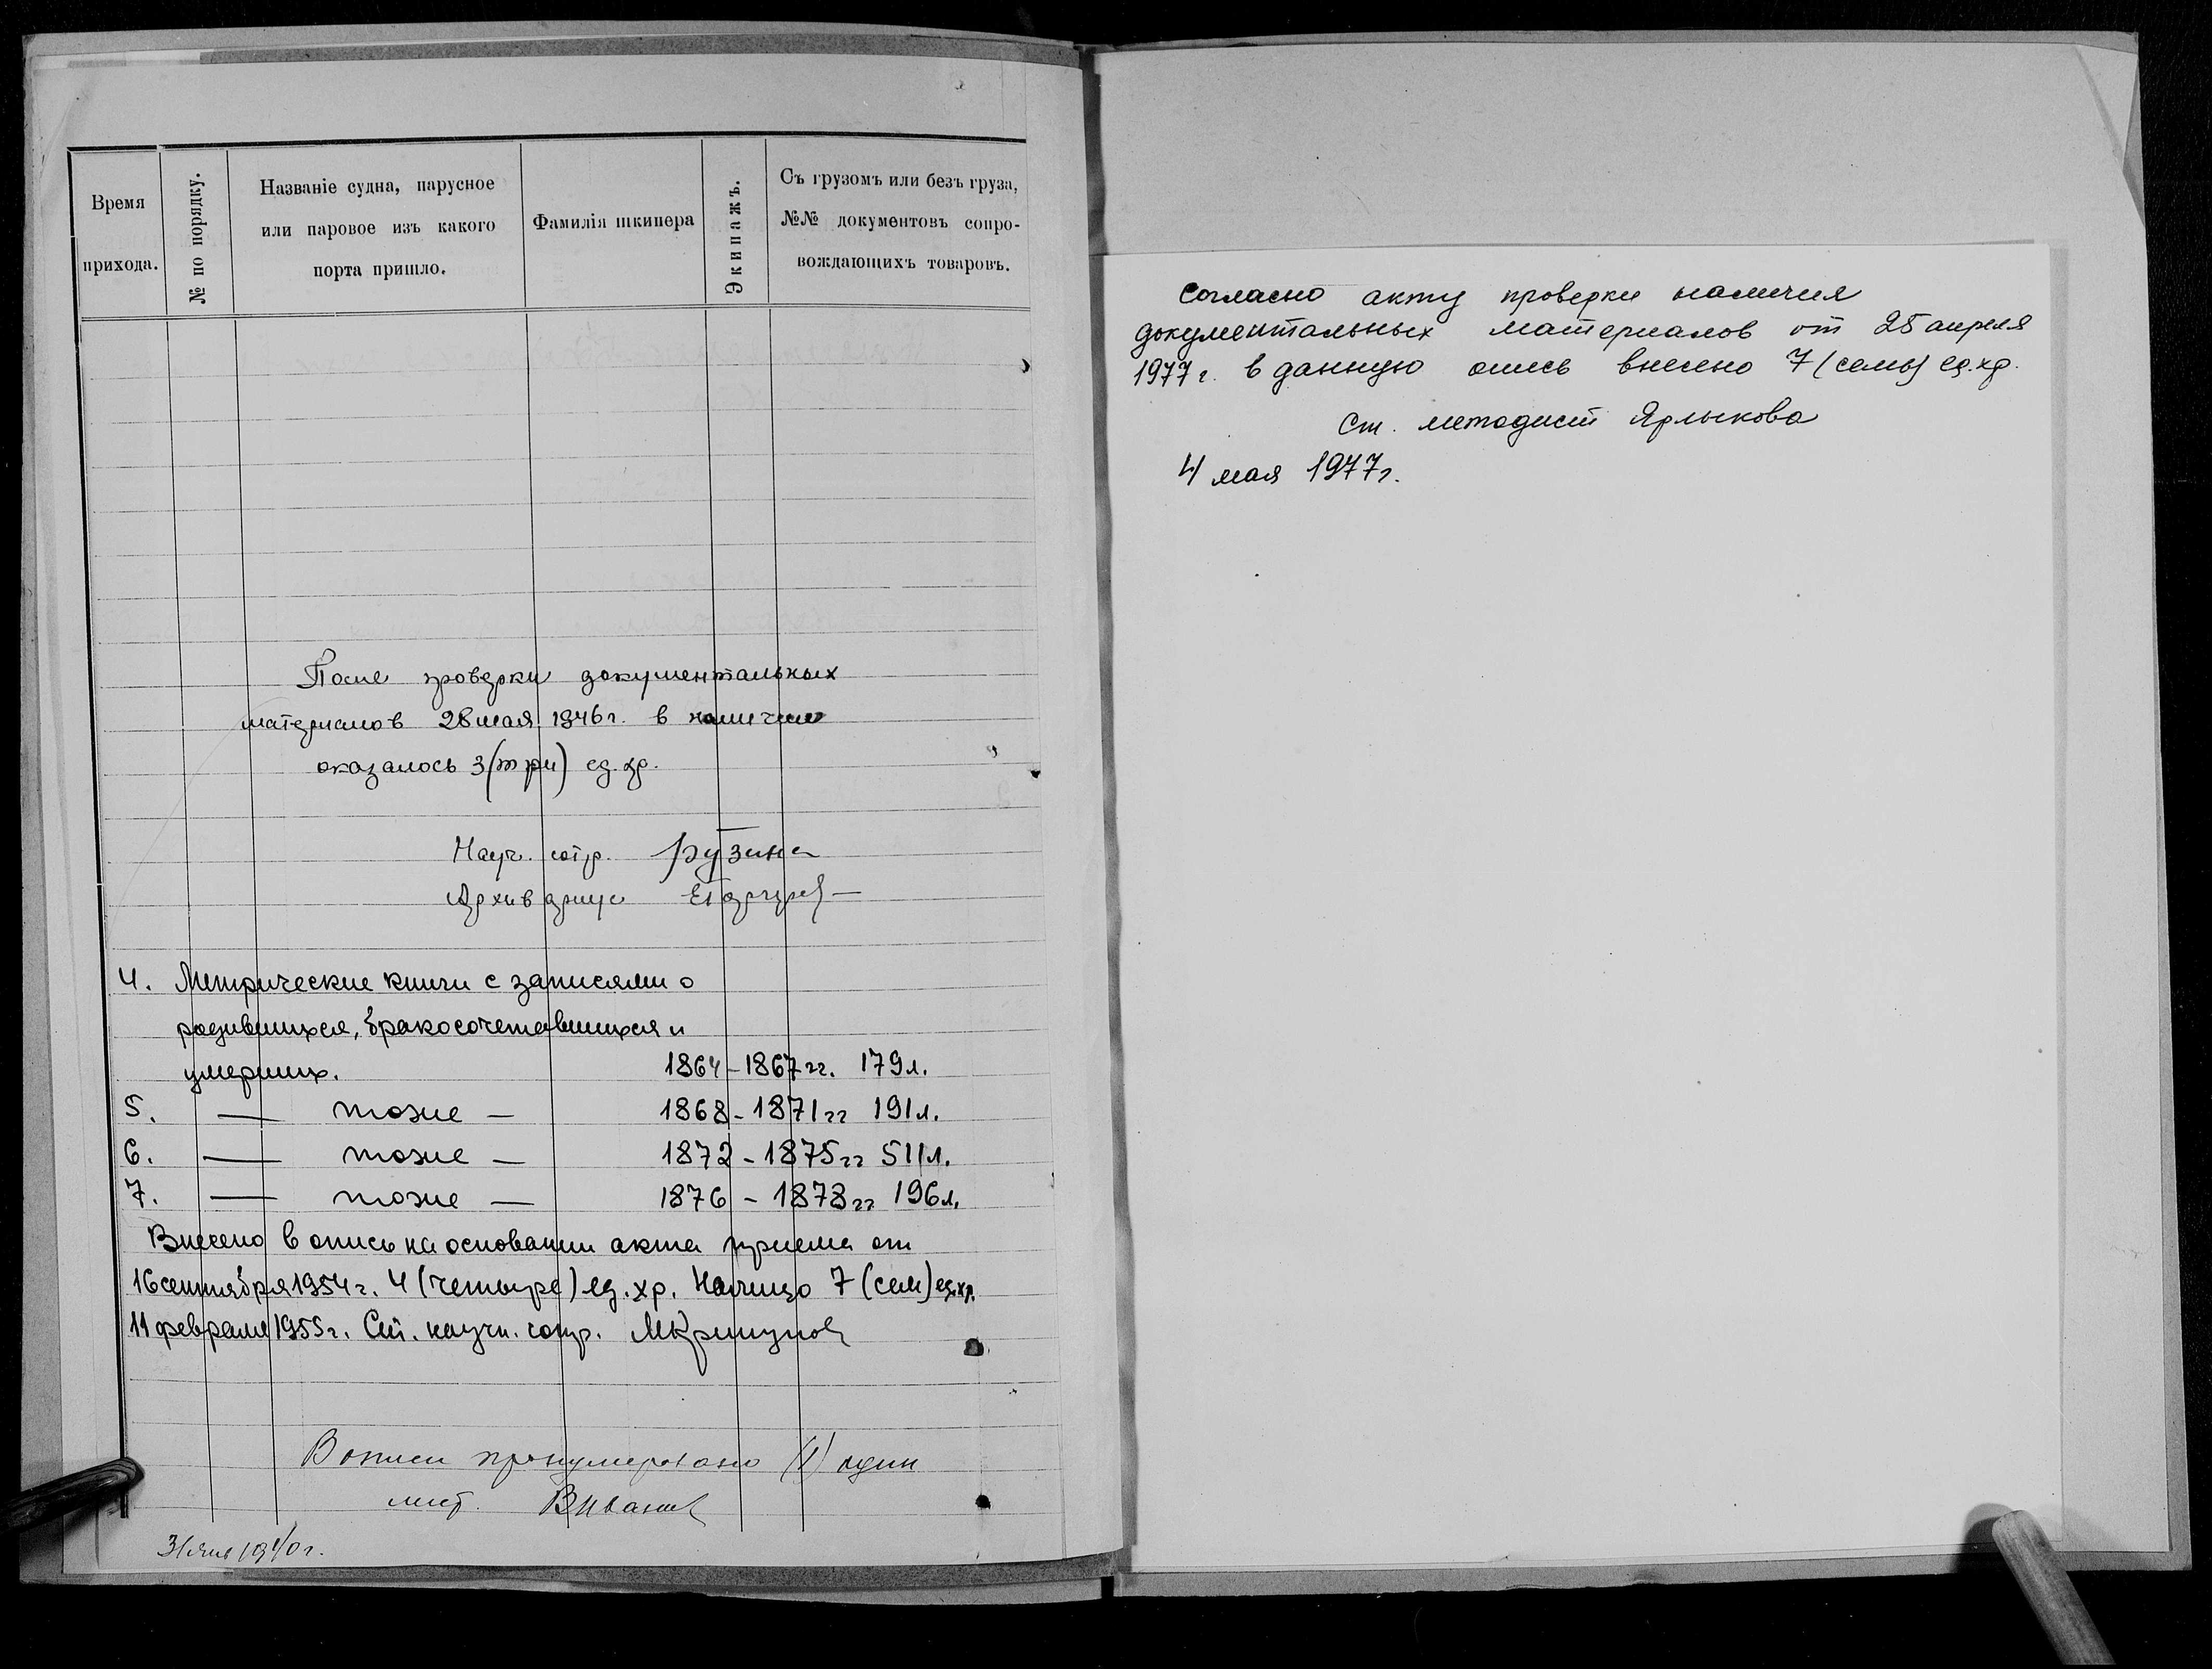 Время
прихода.
№ по порядку.
Названіе судна, парусное
или паровое изъ какого
порта пришло.
Фамилія шкипера
Экипажъ.
Съ грузомъ или безъ груза,
№№ документовъ сопро-
вождающихъ товаровъ.
После проверки документальных
материалов 28 мая 1946 г. в наличии
оказалось 3 (три) ед. хр.
Науч. сотр. Рузина
Архивариус
4. Метрические книги с записями о
родившихся, бракосочетавшихся и
умерших. 1864-1867 гг. 179 л.
5. — тоже — 1868-1871 гг 191 л.
6. — тоже — 1872-1875 гг 511 л.
7. — тоже — 1876-1878 гг 196 л.
Внесено в опись на основании акта приема от
16 сентября 1954 г. 4 (четыре) ед. хр. Налицо 7 (сем) ед. хр.
11 февраля 1955 г. Ст. научн. сотр.
В описи пронумеровано (1) один
лист. В Иванов
31 янв 1940 г.
Согласно акту проверки наличия
документальных материалов от 25 апреля
1977 г. в данную опись внесено 7 (семь) ед. хр.
Ст. методист Ярлыкова
4 мая 1977 г.